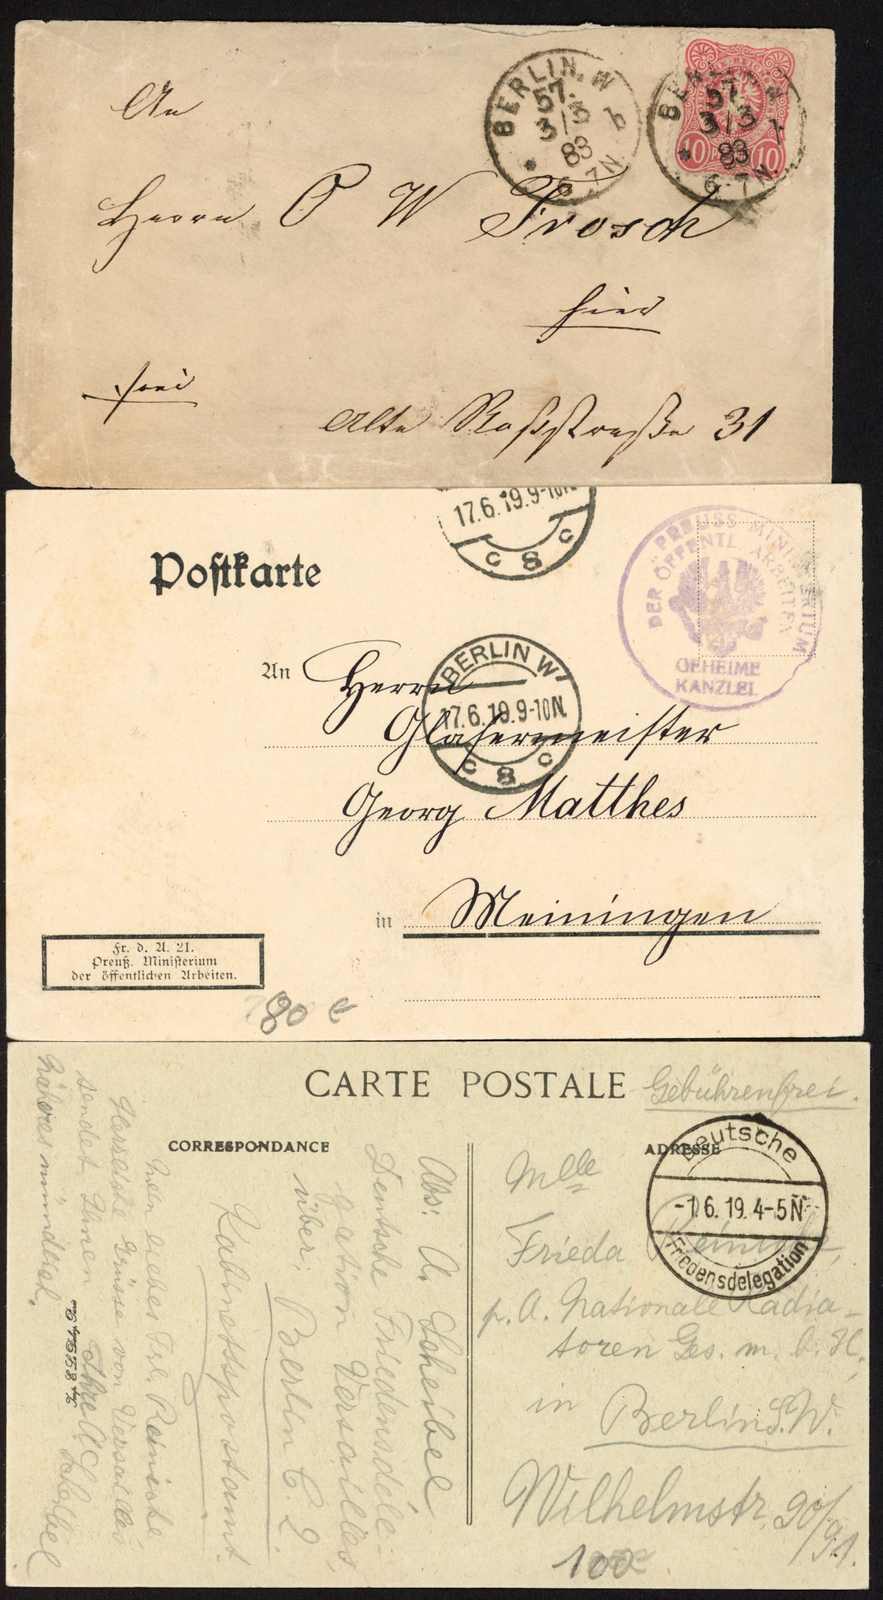 BERLIN. W
57.
3/3
83
6-7N.
BERLIN W
57.
3/3
83
6-7N.
10 10
An
Herrn O W Frosch
hier
frei
Alte Roßstraße 31
17.6.19.9-10N.
c 8 c
Postkarte
PREUSS MINISTERIUM
DER ÖFFENTL ARBEITEN
GEHEIME
KANZLEI
BERLIN W
17.6.19.9-10N.
c 8 c
An Herrn
Glasermeister
Georg Matthes
in Meiningen
Fr. d. A. 21.
Preuß. Ministerium
der öffentlichen Arbeiten.
80 €
CARTE POSTALE
Gebührenfrei.
CORRESPONDANCE
ADRESSE
Deutsche
-1.6.19.4-5N
Friedensdelegation
Mein liebes Frl. Reinicke
Herzliche Grüsse von Versailles
sendet Ihnen Ihr A. Scheibel
Näheres mündlich.
Abs: A. Scheibel
Deutsche Friedensdele-
gation Versailles,
über: Berlin C. 2
Kabinettspostamt.
Mlle
Frieda Reinicke,
p. A. Nationale Radia-
toren Ges. m. b. H,
in
Berlin S.W.
Wilhelmstr. 90/91.
100